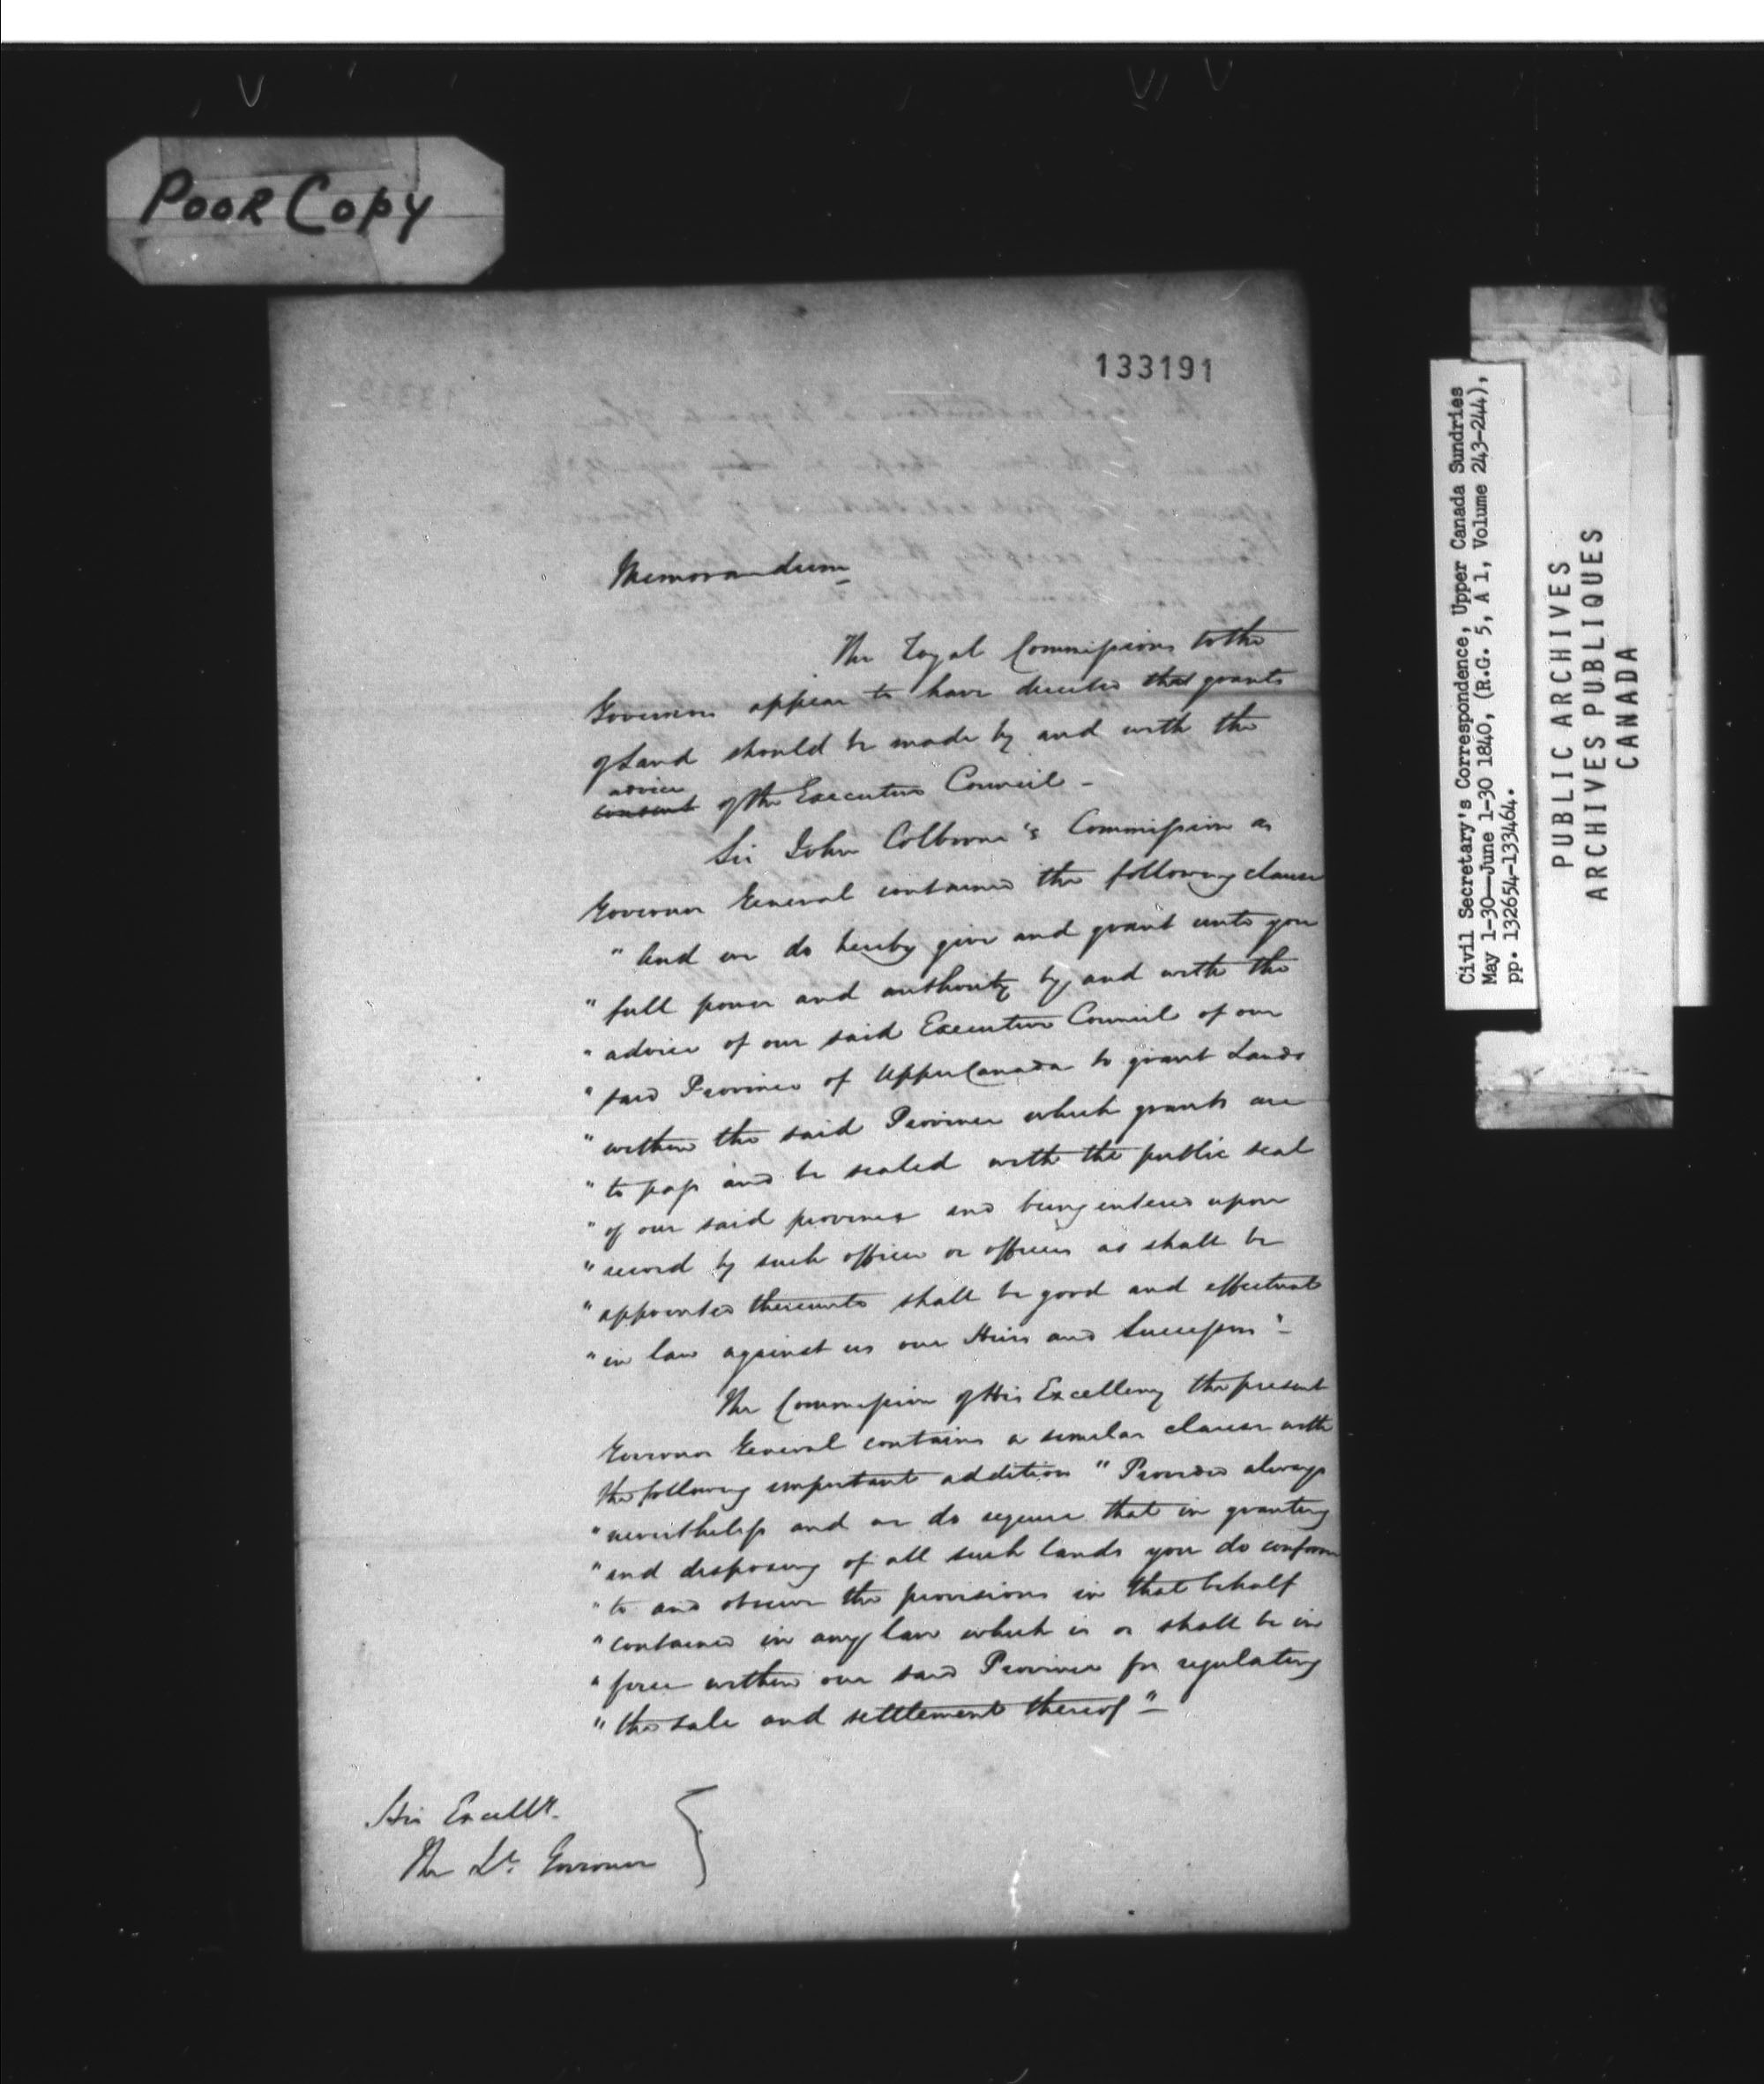 POOR COPY
133191
Memorandum
The Royal Commissions to the
Governors appear to have directed that grants
of Land should be made by and with the
advice
consent of the Executive Council -
Sir John Colborne's Commission as
Governor General contained the following clause
" And we do hereby give and grant unto you
" full power and authority by and with the
" advice of our said Executive Council of our
" said Province of Upper Canada to grant Lands
" within the said Province which grants are
" to pass and be sealed with the public seal
" of our said province and being entered upon
" record by such officer or officers as shall be
" appointed thereunto shall be good and effectual
" in law against us our Heirs and Successors " -
The Commission of His Excellency the present
Governor General contains a similar clause with
the following important addition " Provided always
" nevertheless and we do require that in granting
" and disposing of all such lands you do conform
" to and observe the provisions in that behalf
" contained in any law which is or shall be in
" force within our said Province for regulating
" the sale and settlement thereof " -
His Excelly.
The Lt. Governor
Civil Secretary's Correspondence, Upper Canada Sundries
May 1-30—June 1-30 1840, (R.G. 5, A 1, Volume 243-244),
pp. 132654-133464.
PUBLIC ARCHIVES
ARCHIVES PUBLIQUES
CANADA